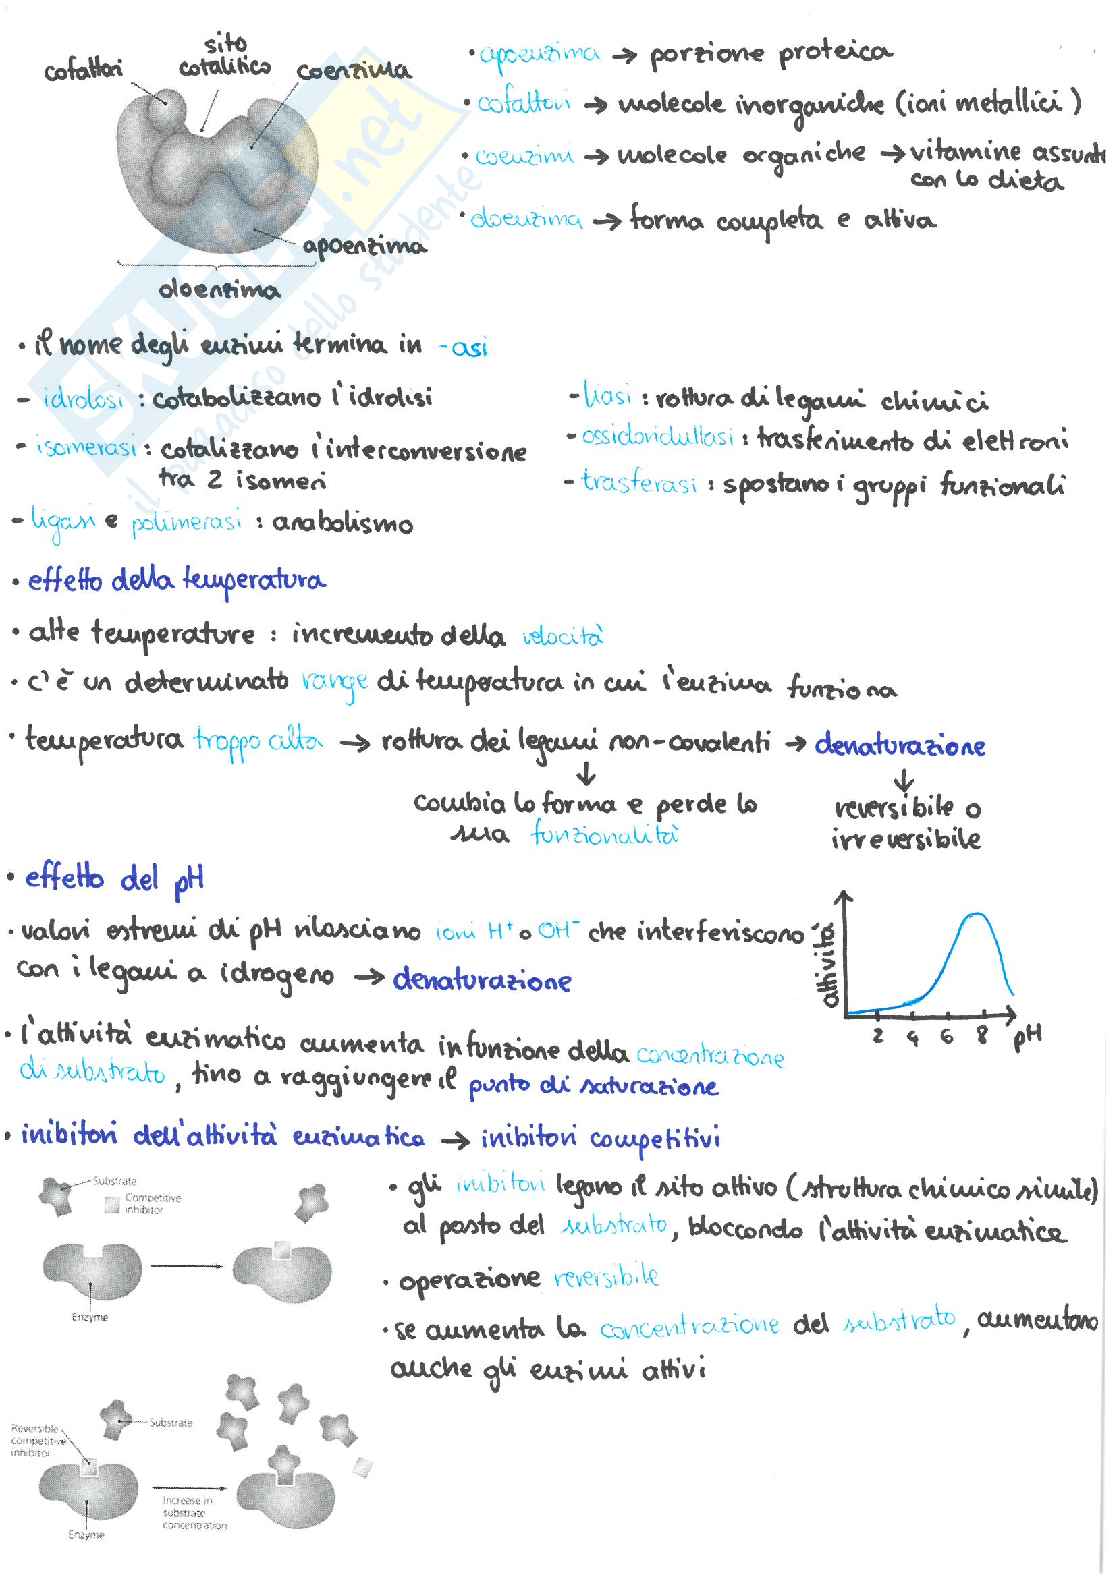 sito
cofattori catalitico coenzima
apoenzima
oloenzima
• apoenzima → porzione proteica
• cofattori → molecole inorganiche (ioni metallici)
• coenzimi → molecole organiche → vitamine assunte
con la dieta
• oloenzima → forma completa e attiva
SKUOLA.net
il paradiso dello studente
• il nome degli enzimi termina in -asi
- idrolasi : catabolizzano l'idrolisi
- isomerasi : catalizzano l'interconversione
tra 2 isomeri
- ligasi e polimerasi : anabolismo
- liasi : rottura di legami chimici
- ossidoriduttasi : trasferimento di elettroni
- trasferasi : spostano i gruppi funzionali
• effetto della temperatura
• alte temperature : incremento della velocità
• c'è un determinato range di temperatura in cui l'enzima funziona
• temperatura troppo alta → rottura dei legami non-covalenti → denaturazione
↓ ↓
cambia la forma e perde la
sua funzionalità
reversibile o
irreversibile
• effetto del pH
• valori estremi di pH rilasciano ioni H⁺ o OH⁻ che interferiscono
con i legami a idrogeno → denaturazione
attività
2 4 6 8 pH
• l'attività enzimatica aumenta in funzione della concentrazione
di substrato, fino a raggiungere il punto di saturazione
• inibitori dell'attività enzimatica → inibitori competitivi
Substrate
Competitive
inhibitor
Enzyme
• gli inibitori legano il sito attivo (struttura chimica simile)
al posto del substrato, bloccando l'attività enzimatica
• operazione reversibile
• se aumenta la concentrazione del substrato, aumentano
anche gli enzimi attivi
Reversible
competitive
inhibitor
Substrate
Enzyme
Increase in
substrate
concentration